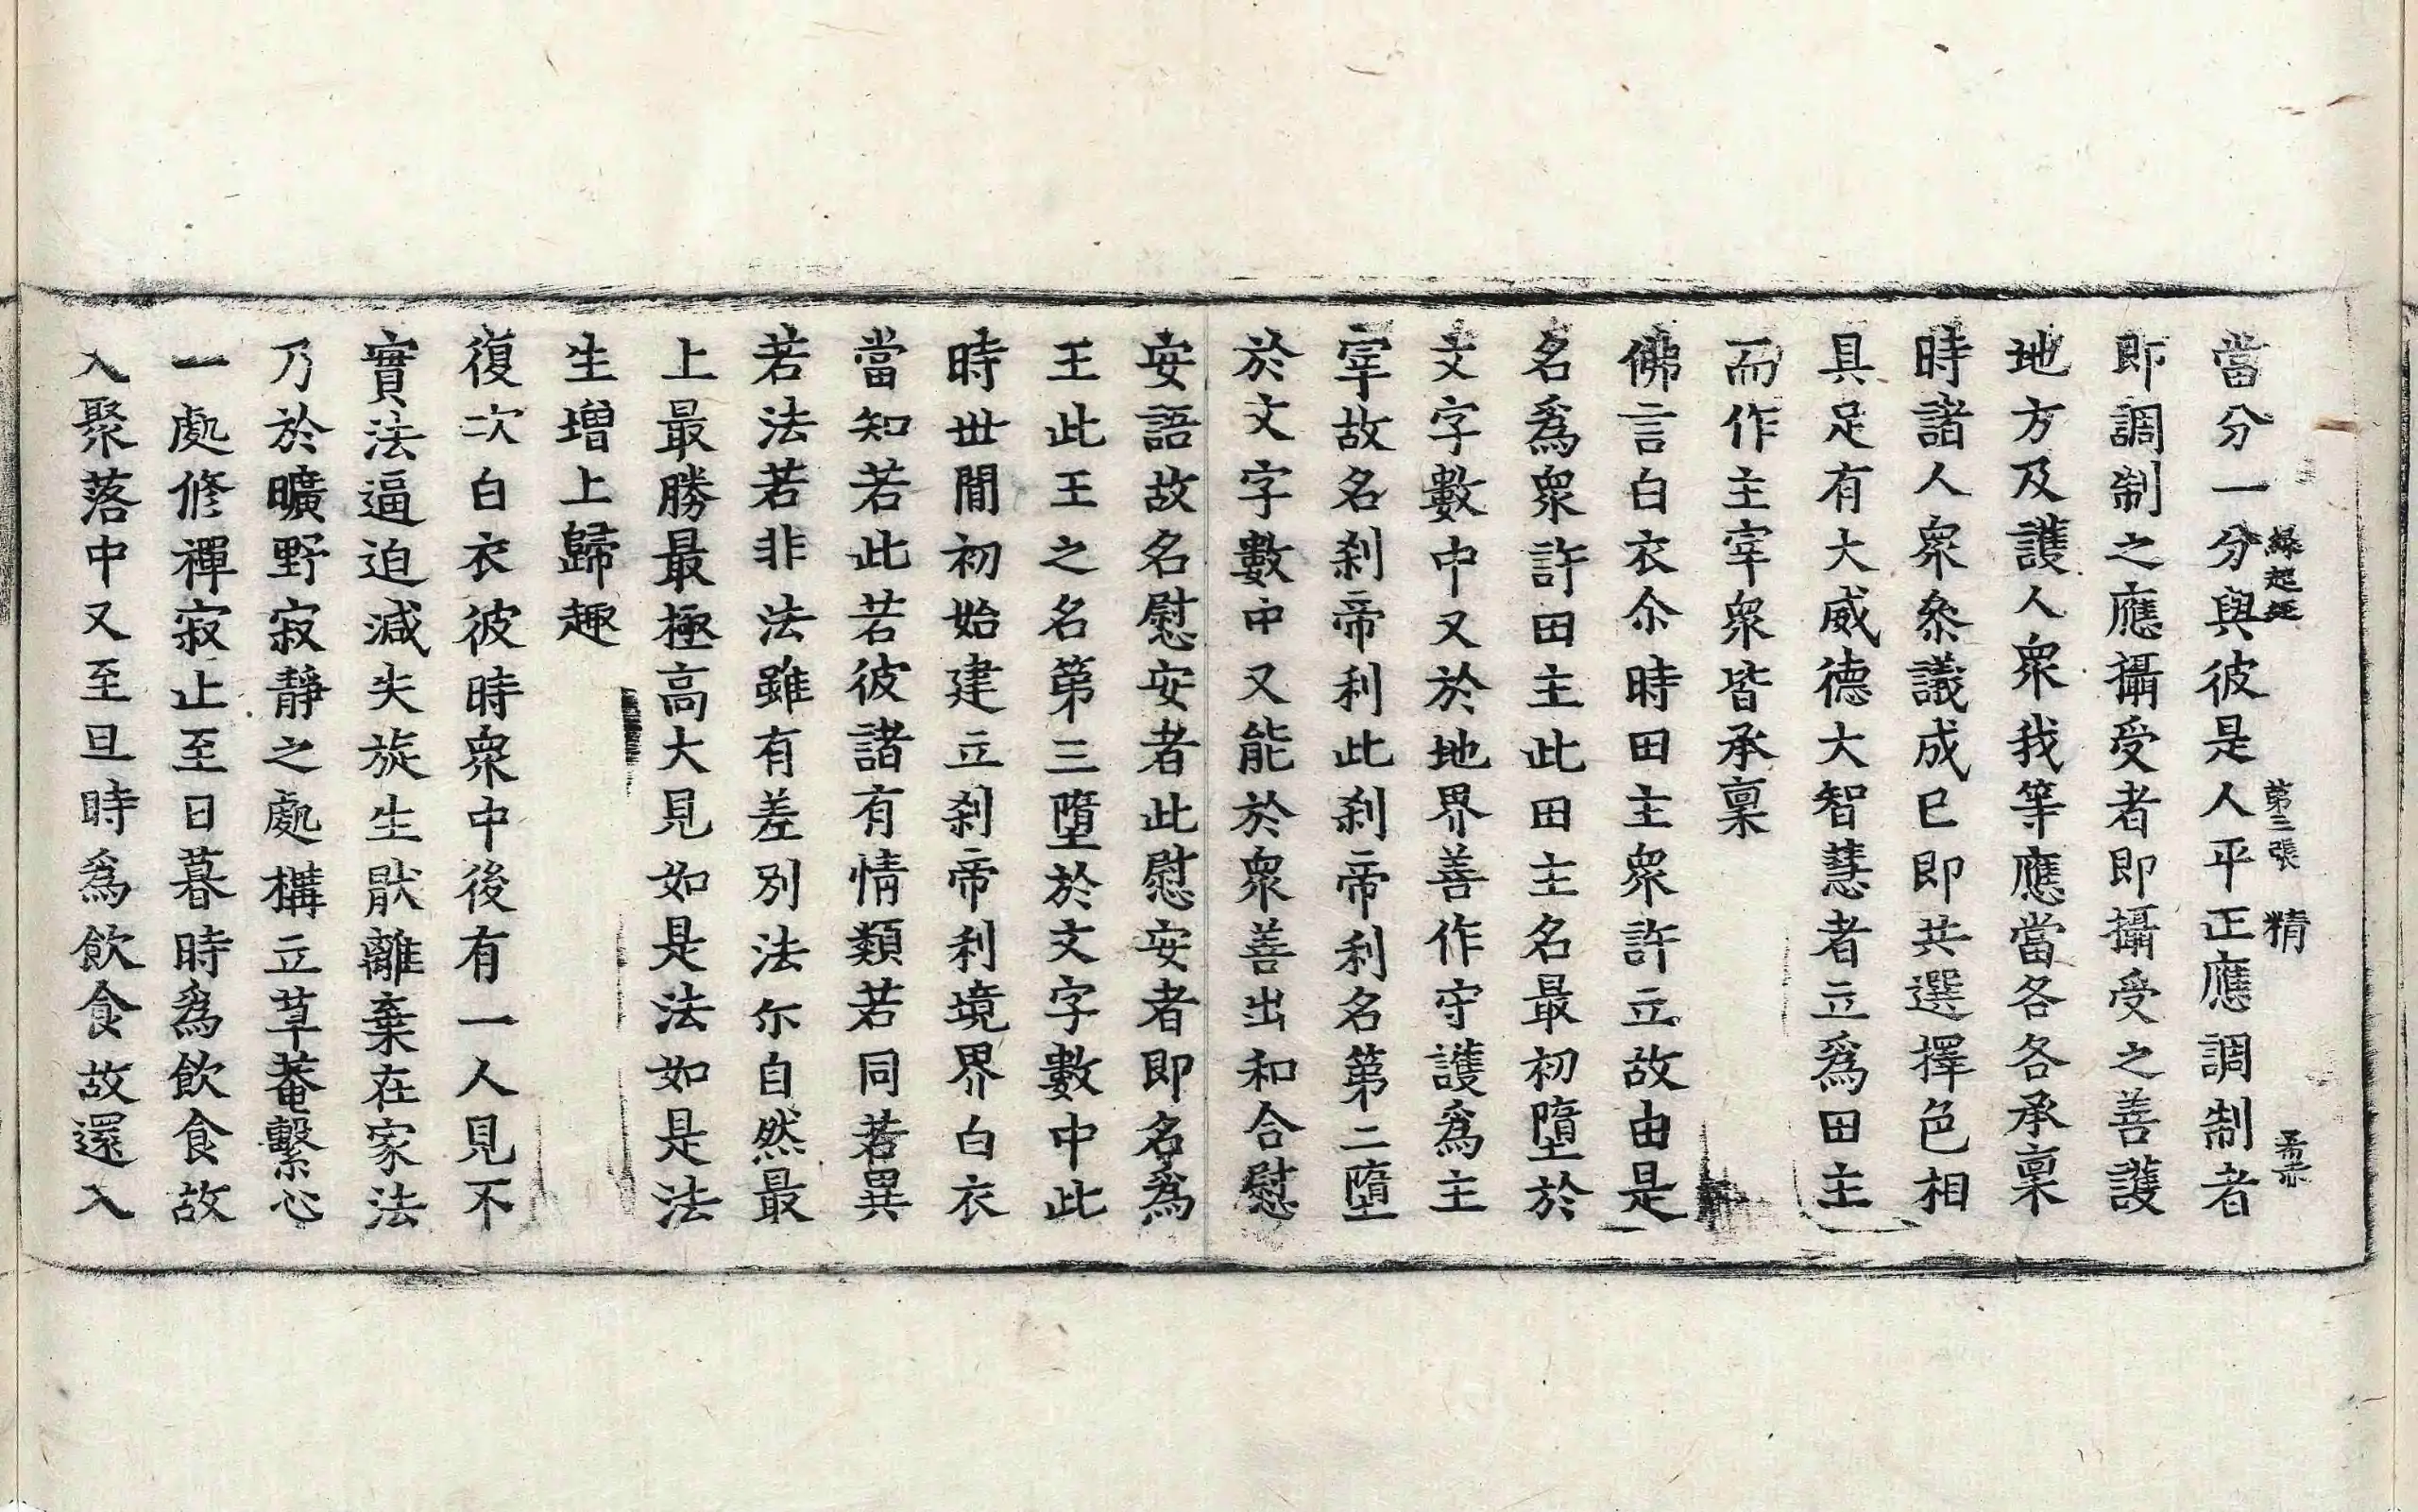 當分一分與彼是人平正應調制者
緣起經 第三張 精
即調制之應攝受者即攝受之善護
地方及護人衆我等應當各各承稟
時諸人衆叅議成已即共選擇色相
具足有大威德大智慧者立爲田主
而作主宰衆皆承稟
佛言白衣尒時田主衆許立故由是
名爲衆許田主此田主名最初墮於
文字數中又於地界善作守護爲主
宰故名刹帝利此刹帝利名第二墮
於文字數中又能於衆善出和合慰
安語故名慰安者此慰安者即名爲
王此王之名第三墮於文字數中此
時世間初始建立刹帝利境界白衣
當知若此若彼諸有情類若同若異
若法若非法雖有差別法尒自然最
上最勝最極高大見如是法如是法
生增上歸趣
復次白衣彼時衆中後有一人見不
實法逼迫減失旋生猒離棄在家法
乃於曠野寂靜之處構立草菴繫心
一處修禪寂止至日暮時爲飲食故
入聚落中又至旦時爲飲食故還入